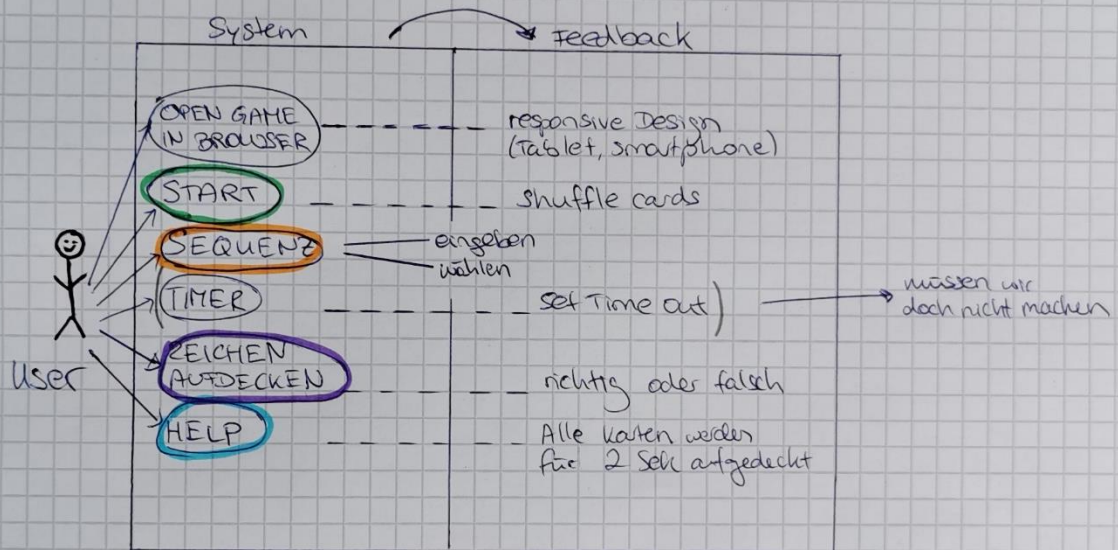 System
Feedback
OPEN GAME
IN BROWSER
responsive Design
(Tablet, smartphone)
START
shuffle cards
SEQUENZ
eingeben
wählen
TIMER
set Time out)
müssen wir
doch nicht machen
ZEICHEN
AUFDECKEN
richtig oder falsch
User
HELP
Alle Karten werden
für 2 Sek aufgedeckt